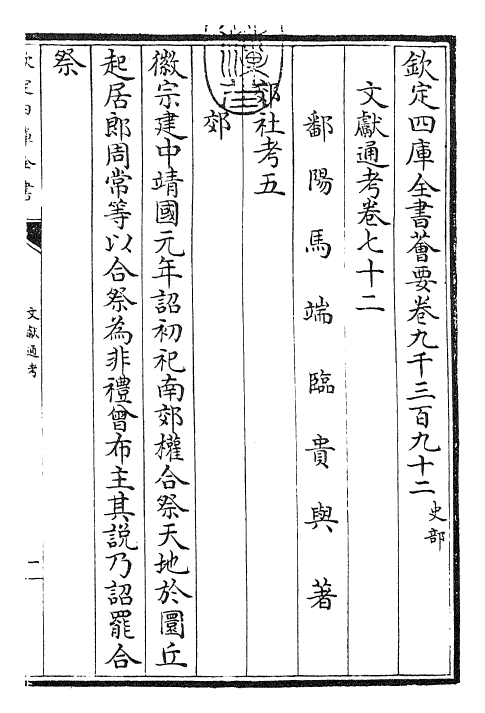 欽定四庫全書薈要卷九千三百九十二 史部
文獻通考卷七十二
鄱陽馬端臨貴與著
郊社考五
郊
徽宗建中靖國元年詔初祀南郊權合祭天地於圜丘
起居郎周常等以合祭為非禮曾布主其說乃詔罷合
祭
欽定四庫全書
文獻通考